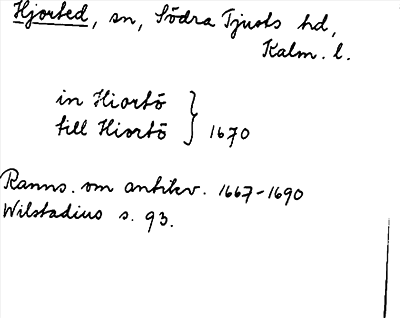 Hjorted, sn, Södra Tjusts hd,
Kalm. l.
in Hiortö
till Hiortö } 1670
Ranns. om antikv. 1667-1690
Wilstadius s. 93.